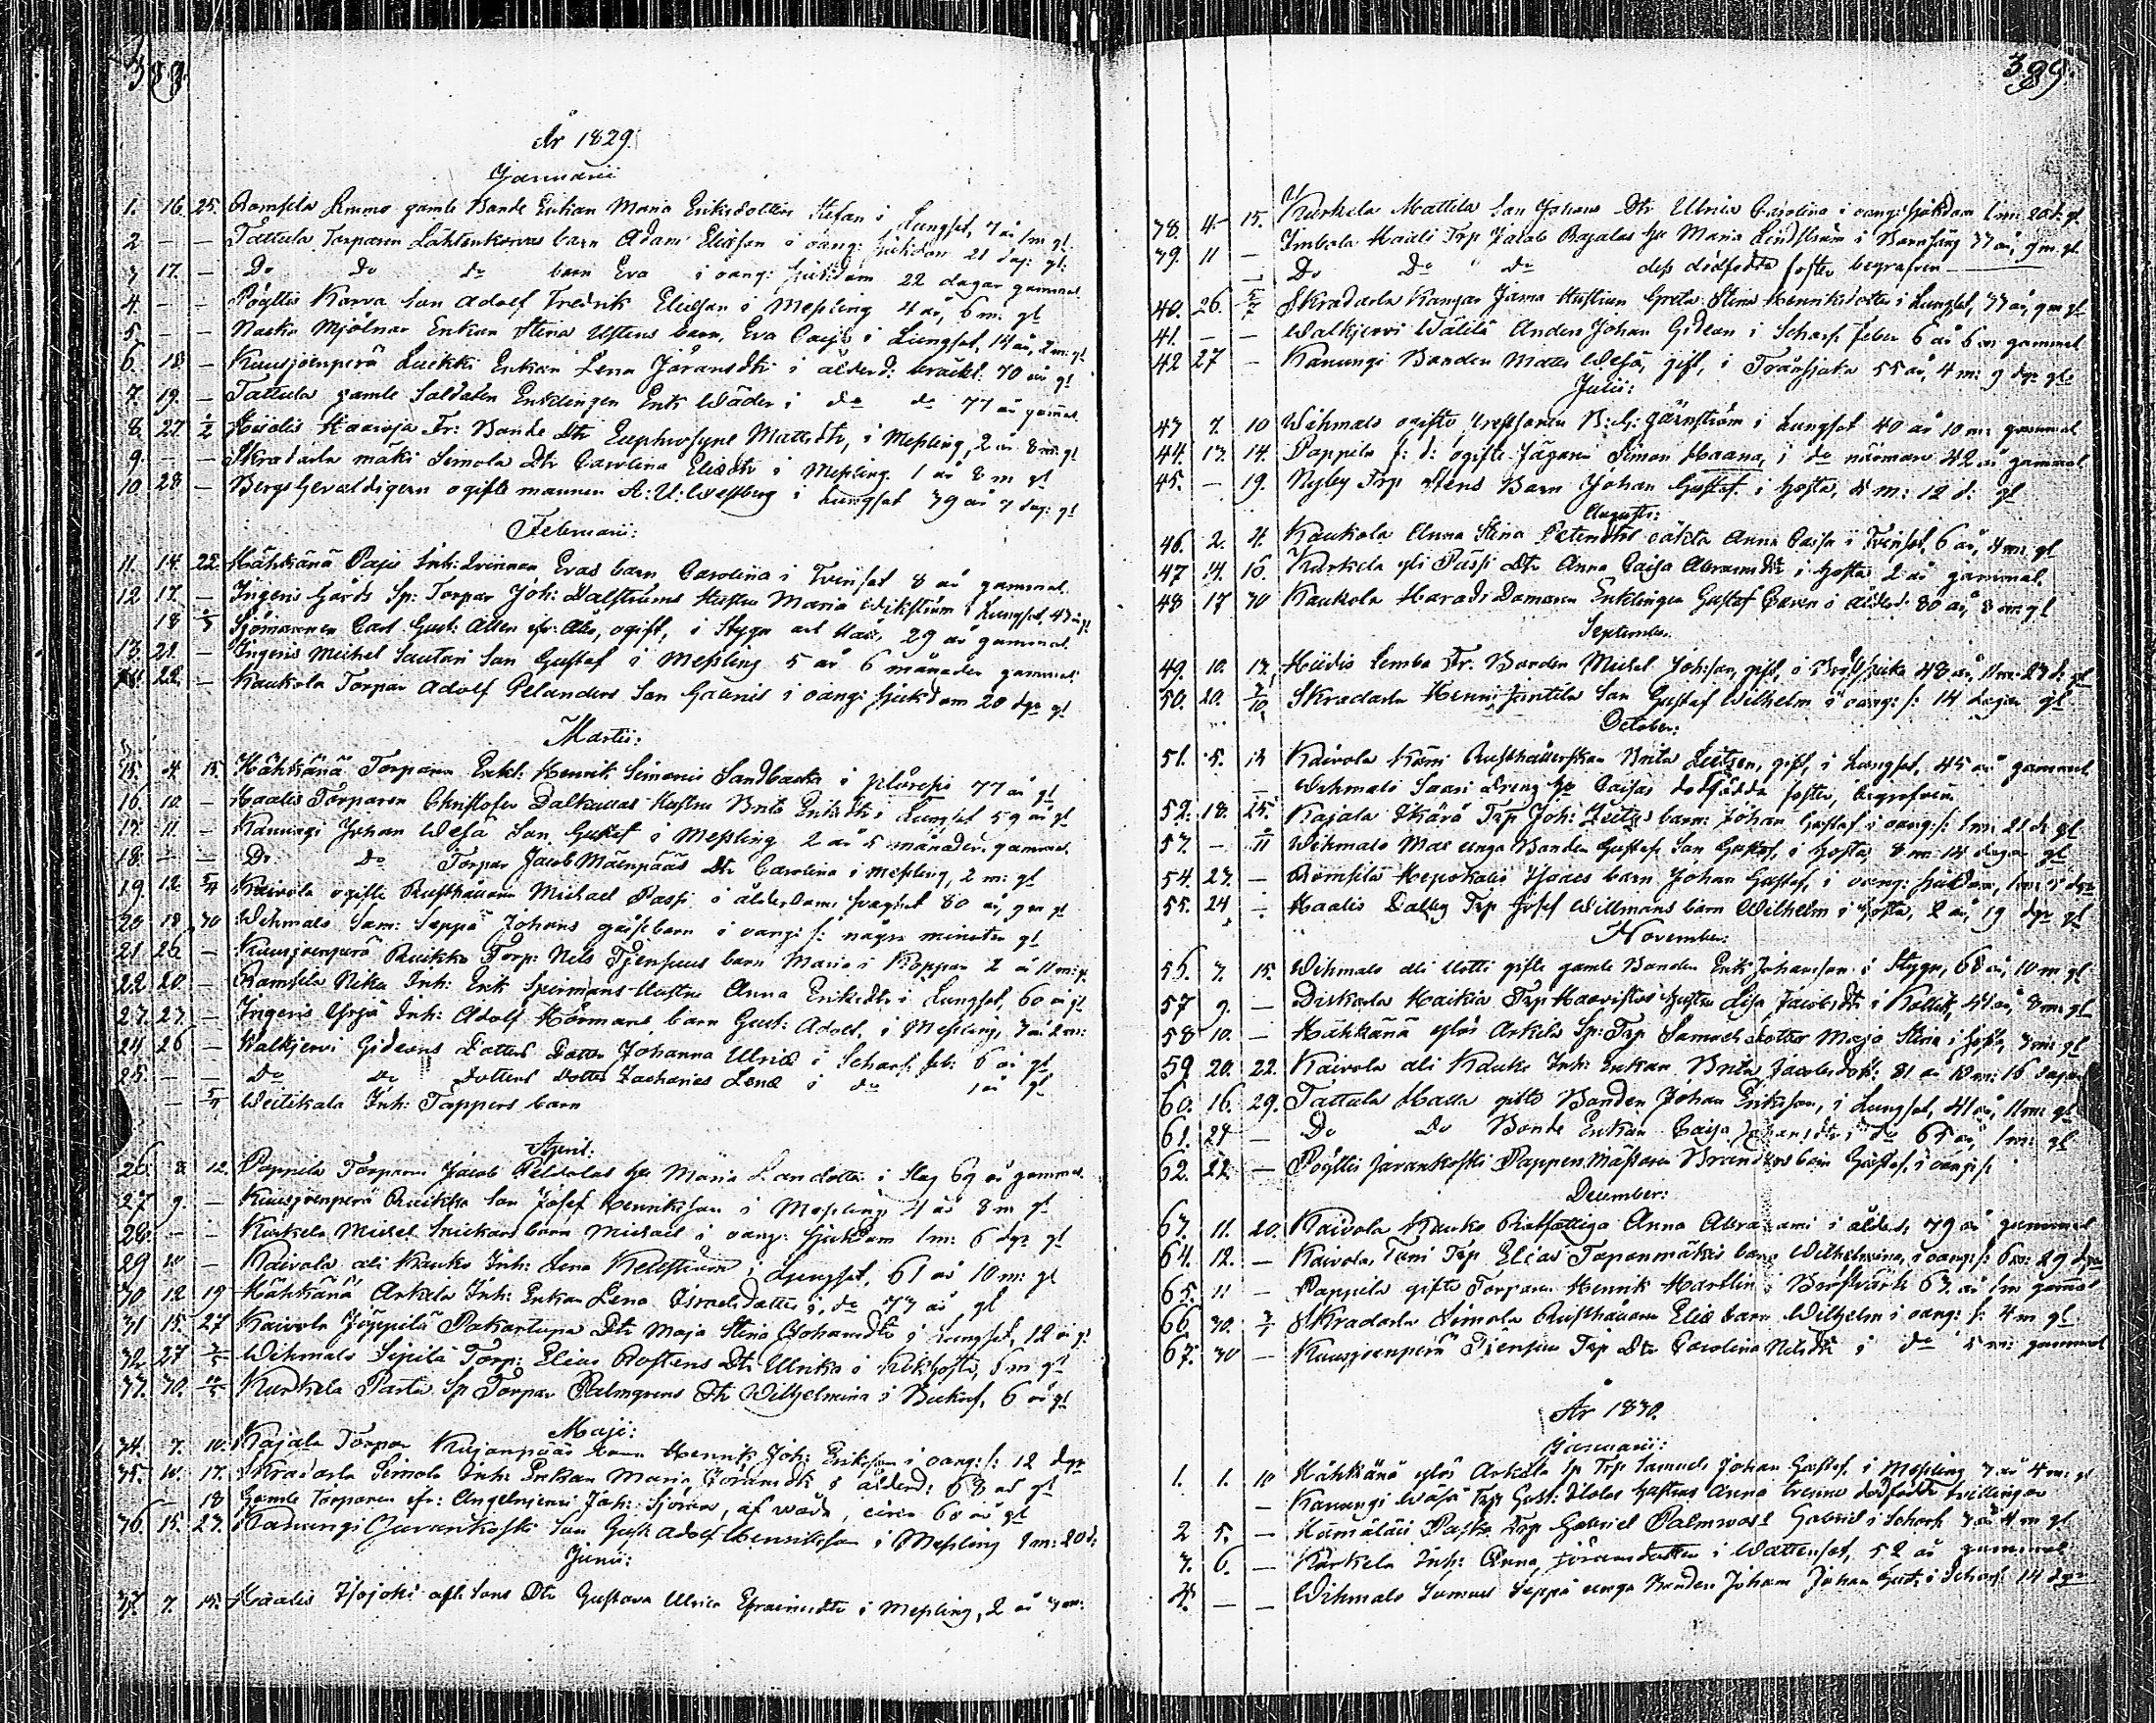 388
År 1829.
Januarii
1. 16. 25. Ramsila Simmo gamle Bonde Enkan Maria Eriksdotters Stefan i Lungsot, 7 år 1 m gl
2 — — Tattula Torparen Lähtenkorvas barn Adam Eliasson i oang: sjukdom 21 dag: gl:
3 17. — Do Do do barn Eva i oang: sjukdom 22 dagar gammal
4. — — Pöyttis Karva Son Adolf Fredrik Eliasson i Messling 4 år, 6 m: gl
5. — — Naska Mjölnar Enkan Stina barn, Eva Caisa i Lungsot, 14 år, 2 m: gl
6. 18. — Kuusjoenperä Luikki Enkan Lena Jöransdtr i ålderd: bräckl: 70 år gl
7. 19. — Tattula gamle Soldaten Enklingen Erik Wäder i do do 77 år gammal
8. 27 2/2 Hiidis Haaroja Fr: Bonde Dtr Euphrosyne Mattsdtr, i Messling, 2 år 8 m: gl
9. — — Skradarla mäki Simola Dtr Carolina Eliædtr i Messling 1 år 8 m gl
10. 28 — Bergs Gevaldigern ogifte mannen A: U: Wessberg i Lungsot 39 år 7 dag: gl
Februarii:
11. 14. 22 Hähkänä Paju Inh: Qvinnan Evas barn Carolina i Tvinsot 8 år gammal.
12 17. — Ingeris Gårds Sp: Torpar Joh: Dalströms Hustru Maria Wikström i Lungsot, 43 år gl
18 2/3 Sjömannen Carl Gust: Allen fr: Åbo, ogift, i Stygn och Håll, 29 år gammal
13. 21. — Ingeris Michel Sautari Son Gustaf i Messling 5 år 6 månader gammal
14. 22. — Kaukola Torpar Adolf Pelanders Son Gabriel i oang: sjukdom 20 dgr gl
Martii:
15. 4. 15. Hähkänä Torparen Enkl: Henrik Simonis Sandbacka i pleuresi 77 år gl
16. 10. — Haalis Torparen Christofer Dalkullas Hustru Brita Eriksdtr i Lungsot 59 år gl
17. 11 — Kanungi Johan Wesä Son Gustaf i Messling 2 år 5 månader gammal
18. — — Do Do Torpar Jacob Mäenpääs Dtr Carolina i messling, 2 m: gl
19. 12 5/4 Kaivola ogifte Rusthållaren Michael Passi i ålderdoms svaghet 80 år, gl
20 18 30 Wihmalo Sam: Seppä Johans barn i oang: s: några minuter gl
21 26 — Kuusjoenperä Ruikka Torp: Nils Tjensuus barn Maria i Koppor 2 år 11 m: gl
22 20. — Ramsila Nika Inh: Erik Spermans Hustru Anna Eriksdtr i Lungsot, 60 år gl
23. 23. — Ingeris Yrjä Inh: Adolf Hörmans barn Gust: Adolf, i Messling 3 år 2 m:
24 26 — Walkjervi Gideons Dotters Dotter Johanna Ulrica i Scharl: feb: 6 år gl
25. — — Do do Dotters Dotter Zacharias Lena i do 1 år gl
— 5/4 Weitikala Inh: Tappers barn
April:
26. 8. 12. Pappila Torparen Jacob Peldolas h: Maria i Slag 69 år gammal
27 9. — Kuusjoenperä Ruikka Son Josef Henriksson i Messling 4 år 8 m gl
28. — — Kurkela Michel Snickars barn Michael i oang: sjukdom 1 m: 6 dgr gl
29 10 — Kaivola ali Kauko Inh: Lena Kellström i Lungsot, 61 år 10 m: gl
30 12 19 Hähkänä Arkela Inh: Enkan Lena Israelsdotter i do 73 år gl
31 15. 27 Kaivola Jöyppilä Pakartupa Dtr Maja Stina Johansdtr i Lungsot, 12 år gl
32 27 3/5 Wihmalo Sipilä Torp: Elias Rostens Dtr Ulrika i Kikhosta, 6 m gl
33. 30. 10/5 Kurkela Parta Sp Torpar Palmgrens Dtr Wilhelmina i Bukref, 6 år gl
Maji:
34. 7. 10. Kajala Torpar Kujanpääs Son Henrik Joh: Eriksson i oang: s: 12 dgr
35. 10. 17. Skradarla Simola Inh: Enkan Maria Jöransdtr i ålderd: 68 år gl
— 18 Gamle Torparen fr: Angelnjemi Joh: Sjöman, af wåda, circa 60 år gl
36. 15. 27. Kanungi Juvankoski Son Gust: Adolf Henriksson i Messling 9 m: 20 d:
Junii:
37. 7. 14. Haalis Isojoki afl: Sons Dtr Gustava Ulrica Efraimsdtr i Messling, 2 år 3 m:
389.
38. 4. 15. Kurkela Mattila Son Johans Dtr Ulrica Carolina i oang: sjukdom 1 m: 20 d: gl
39. 11 — Imbola Haali Trp Jacob Rajalas h: Maria Lindström i Barnsäng 33 år, 9 m. gl
— Do Do do dess dödfödda foster begrafven
40. 26. 5/7 Skradarla Kangas Jama Hustrun Greta Stina Henriksdotter i Lungsot, 33 år, 9 m gl
41. — — Walkjervi Wälilä Anders Johan Gideon i Scharl: feber 6 år 6 m gammal
42 27 — Kanungi Bonden Matts Wesä, gift, i Trånsjuka 55 år, 4 m: 9 dgr gl:
Julii:
43 7. 10 Wihmalo ogifte B: G: Gärnström i Lungsot 40 år 10 m: gammal
44. 13. 14. Pappila f: d: ogifte Jägaren Simon Haana, i do närmare 42 år gammal
45. — 19. Nyby Trp Stens Barn Johan Gustaf i Hosta, 4 m: 12 d: gl
Augusti:
46. 2. 4. Kaukola Anna Stina Petersdtrs oäkta Anna Caisa i Tvinsot, 6 år, 4 m: gl
47 14. 16. Kurkela yli Passi Dtr Anna Caisa Abramsdtr i Hosta 2 år gammal.
48 17 30 Kaukola Harads Domaren Enklingen Gustaf Caren i ålderd: 80 år, 8 m: gl
September.
49. 10. 13. Hiidis Lemba Fr. Bonden Michel Johsson, gift, i Bröstsjuka 48 år, 11 m: 27 d: gl
50. 20. 4/10 Skradarla Henri Junttila Son Gustaf Wilhelm i oang: s: 14 dagar gl
October:
51. 5. 13 Kaivola Käri Rusthållerskan Brita Lietzen, gift, i Lungsot, 45 år gammal
— Wihmalo Saari Dreng h: Caisas dödfödda foster, begrafven
52. 18. 25. Kajala Ikärä Trp Joh: barn Johan Gustaf i oang: s: 1 m: 21 d. gl
53. — 8/11 Wihmalo Mas unga Bonden Gustafs Son Gustaf, i Hosta, 8 m 14 dagar gl
54. 23. — Römsilä Hepokalis Isaacs barn Johan Gustaf, i oang: sjukdom, 1 m: 5 dgr
55. 24 — Haalis Dalby Trp Josef Willmans barn Wilhelm i Hosta, 2 år, 19 dgr gl
November:
56. 7. 15. Wihmalo ali Uotti gifte gamle Bonden Erik Johansson i Stygn, 68 år, 10 m gl
57 9. — Diskarla Haikio Trp Haavistos Hustru Lisa Jacobsdtr i Kallbr:, 41 år, 8 m: gl
58 10. — Hähkänä ylös Arkela Sp: Trp Samuels dotter Maja Stina i Hosta, 3 m: gl
59 20. 22. Kaivola ali Kauko Inh: Enkan Brita Jacobsdotr: 81 år 10 m: 16 dagar
60. 16. 29. Tattula Halla gifte Bonden Johan Eriksson, i Lungsot, 41 år, 11 m: gl
61. 24 — Do Do Bonde Enkan Caisa Johansdtr i do 65 år, 1 m: gl
62. 22 — Pöyttis Juvankoski Pappers Mästaren Branders barn Gustaf, i oang: s:
December:
63. 11. 20. Kaivola Kauko Rotfattiga Anna Abrahami i ålderd: 79 år gammal
64. 12. — Kaivola, Tani Trp Elias Tapanmäkis barn Wilhelmina, i oang: s: 6 m: 29 dgr
65. 11 — Pappila gifte Torparen Henrik Hartlin i Bröstvärk 63 år 1 m gammal
66 30. 3/1 Skradarla Simola Rusthållaren Elias barn Wilhelm i oang: s: 4 m gl
67. 30 — Kuusjoenperä Tjensuu Trp Dtr Carolina Nilsdtr i do 5 m: gammal
År 1830.
Januarii:
1. 1. 10 Hähkänä ylös Arkela Sp Trp Samuels Johan Gustaf, i Messling 3 år 4 m: gl
— Kanungi Wäsä Trp Gust: Hustrus Anna dödfödda tvillingar
2 5. — Hämäläis Paska Trp Gabriel Palmroos Gabriel i Scharl: 3 år 4 m gl
3. 6. — Kurkela Inh: Anna Jöransdotter i Wattensot, 52 år gammal
4. — — Wihmalo Samuel Seppä unga Bonden Johans Johan Gust: i Scharl: 14 dgr